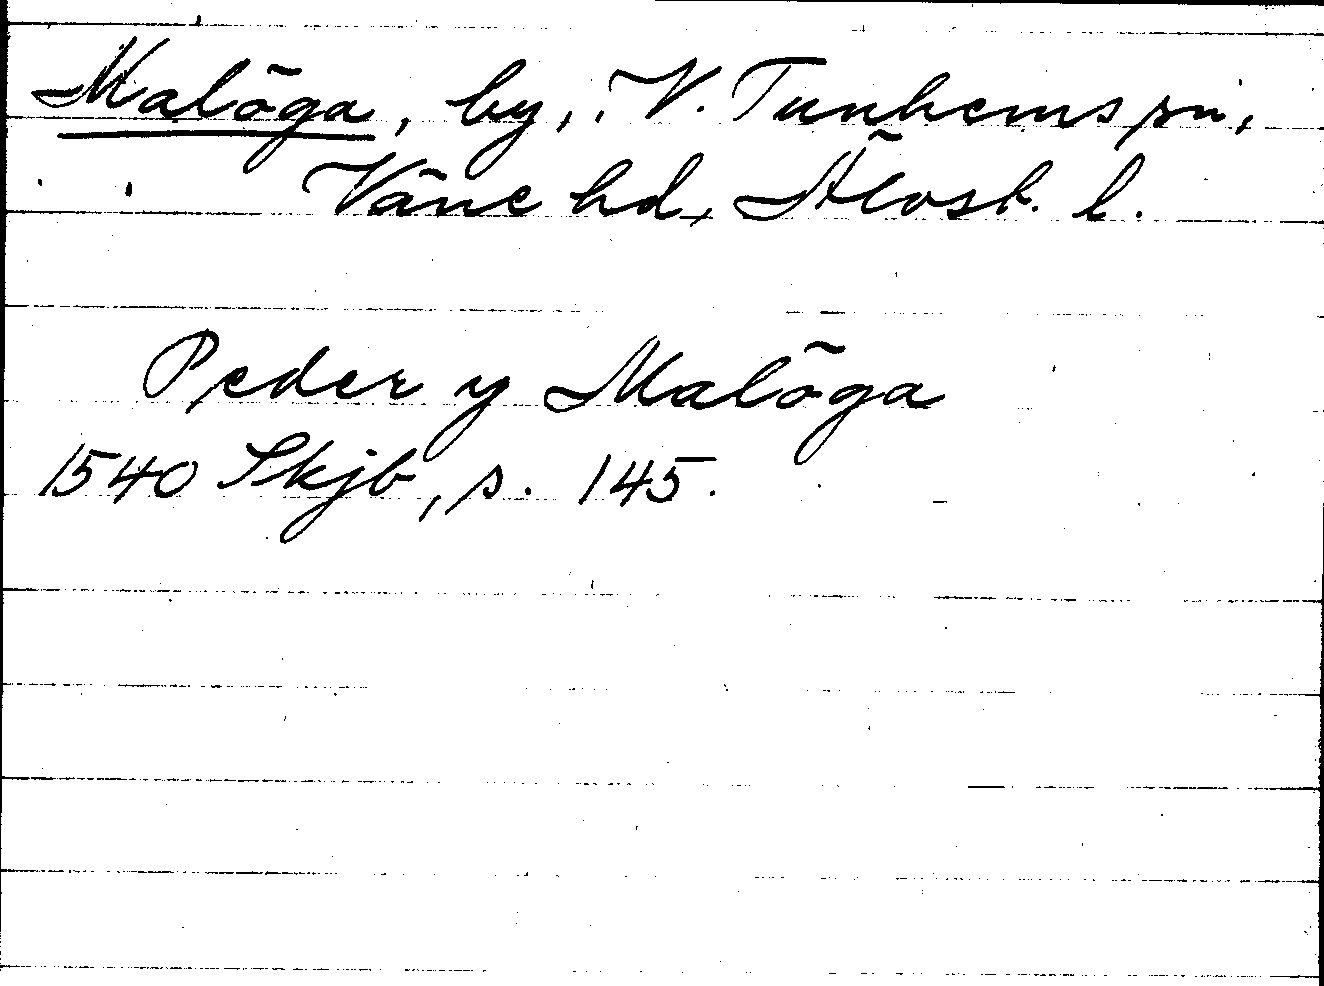 Malöga, by, V. Tunhems sn,
Väne hd, Älvsb. l.
Peder y Malöga
1540 Skjb, s. 145.